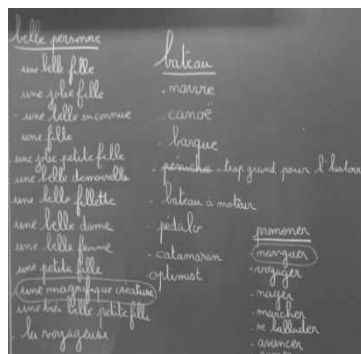 belle personne
une belle fille
- une jolie fille
- une belle inconnue
une fille
- une jolie petite fille
une belle demoiselle
une belle fillette
une belle dame
une belle femme
une petite fille
une magnifique créature
une très belle petite fille
la voyageuse
bateau
- navire
canoë
- barque
- péniche - trop grand pour l'histoire
bateau à moteur
- pédalo
- catamaran
- optimist
promener
- naviguer
- voyager
- nager
- marcher
- se ballader
- avancer